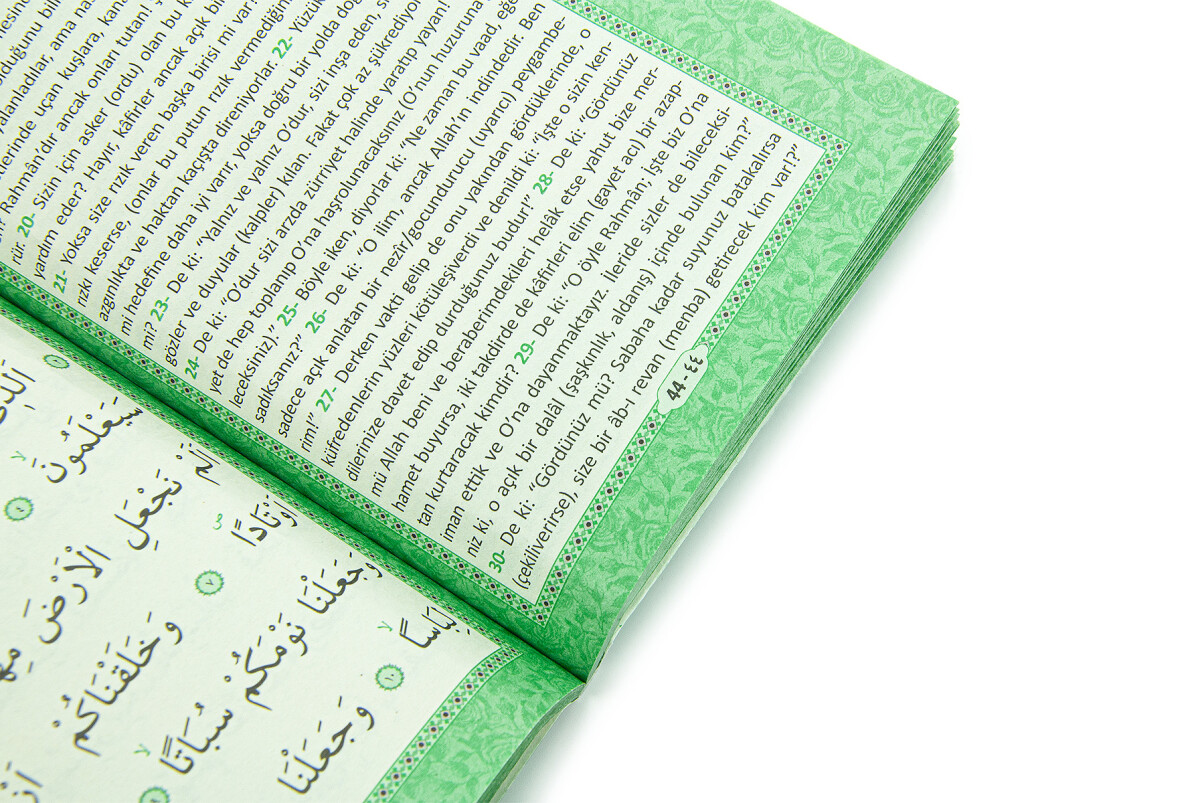 duğunu bil
yalanladılar, ama nas
lerinde uçan kuşlara, kana
r Rahmân’dır ancak onları tutan! Ş
rür. 20- Sizin için asker (ordu) olan bu k
yardım eder? Hayır, kâfirler ancak açık bir
21- Yoksa size rızık veren başka birisi mi var?
rızkı keserse, (onlar bu putun rızık vermediğin
azgınlıkta ve haktan kaçışta direniyorlar. 22- Yüzük
mi hedefine daha iyi varır, yoksa doğru bir yolda doğ
mi? 23- De ki: “Yalnız ve yalnız O’dur, sizi inşa eden, si
gözler ve duyular (kalpler) kılan. Fakat çok az şükrediyor
24- De ki: “O’dur sizi arzda zürriyet halinde yaratıp yayan!
yet de hep toplanıp O’na haşrolunacaksınız (O’nun huzuruna
leceksiniz).” 25- Böyle iken, diyorlar ki: “Ne zaman bu vaad, eğe
sadıksanız?” 26- De ki: “O ilim, ancak Allah’ın indindedir. Ben
sadece açık anlatan bir nezîr/gocundurucu (uyarıcı) peygambe-
rim!” 27- Derken vakti gelip de onu yakından gördüklerinde, o
küfredenlerin yüzleri kötüleşiverdi ve denildi ki: “İşte o sizin ken-
dilerinize davet edip durduğunuz budur!” 28- De ki: “Gördünüz
mü Allah beni ve beraberimdekileri helâk etse yahut bize mer-
hamet buyursa, iki takdirde de kâfirleri elim (gayet acı) bir azap-
tan kurtaracak kimdir? 29- De ki: “O öyle Rahmân; işte biz O’na
iman ettik ve O’na dayanmaktayız. İleride sizler de bileceksi-
niz ki, o açık bir dalâl (şaşkınlık, aldanış) içinde bulunan kim?”
30- De ki: “Gördünüz mü? Sabaha kadar suyunuz batakalırsa
(çekiliverirse), size bir âb-ı revan (menba) getirecek kim var!?”
44 - ٤٤
سَيَعْلَمُونَ ٤
اَلَمْ نَجْعَلِ الْاَرْضَ
٧ وَخَلَقْنَاكُمْ
وَجَعَلْنَا نَوْمَكُمْ سُبَاتًا
لِبَاسًا ١٠ وَجَعَلْنَا